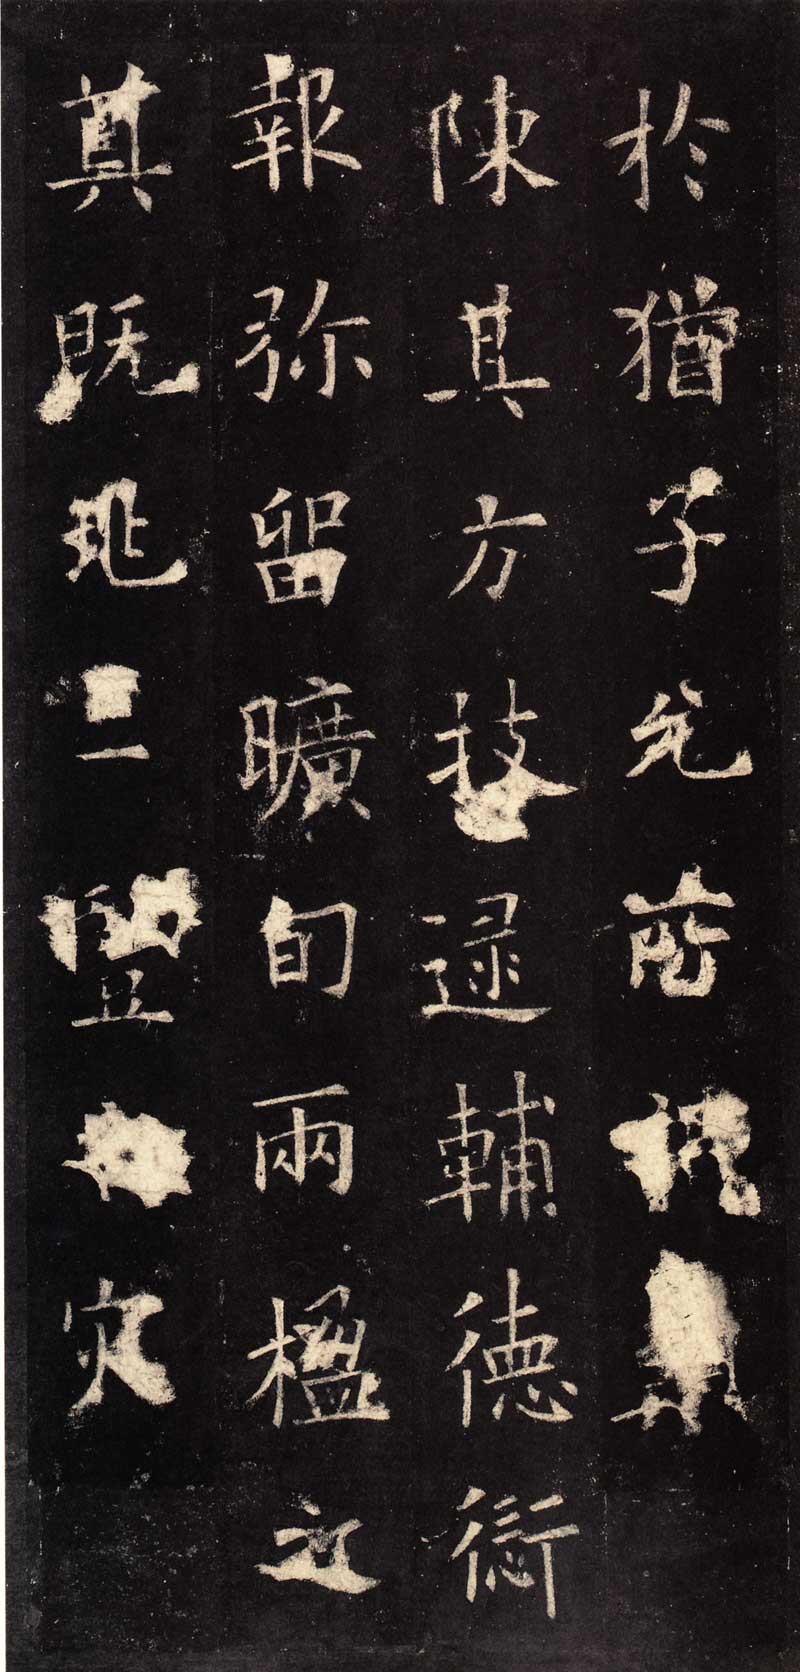 於猶子允
陳其方技逮輔德愆
報弥留曠旬兩楹之
奠既兆二豎灾